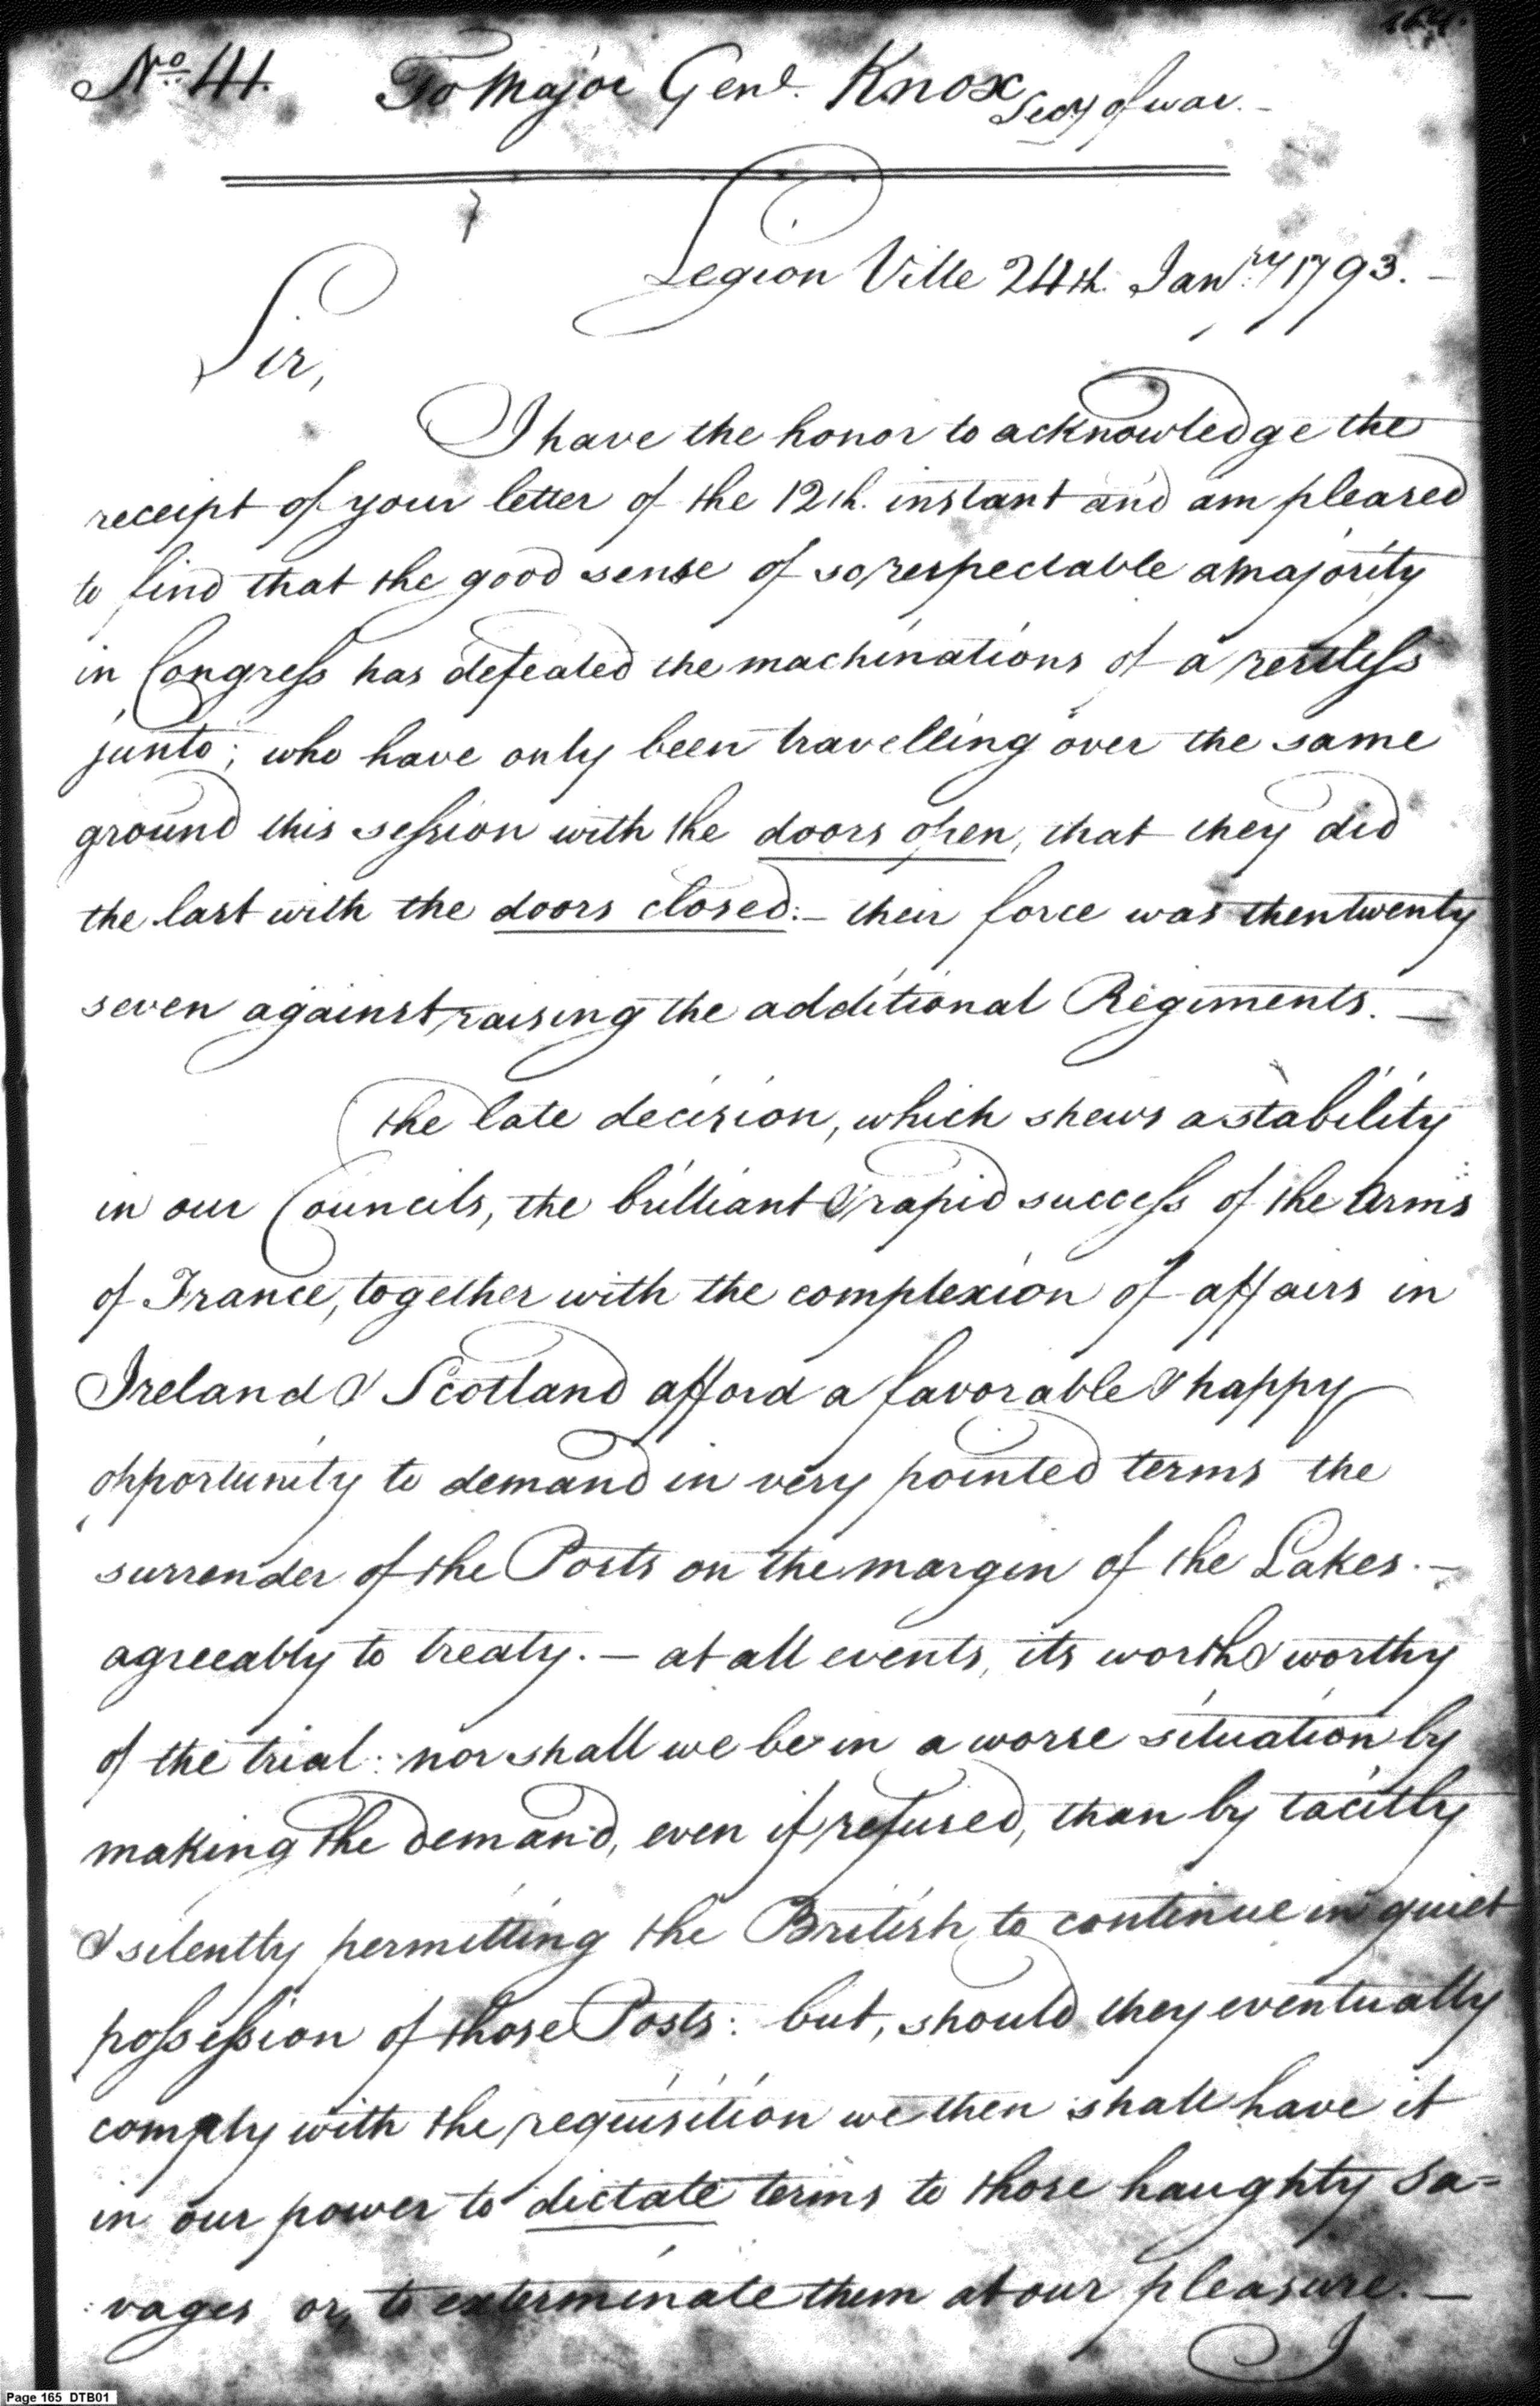 164.
No. 41. To Major Genl. Knox Secy of war. -
Legion Ville 24th. Janry 1793. -
Sir,
I have the honor to acknowledge the
receipt of your letter of the 12th. instant and am pleased
to find that the good sense of so respectable a majority
in Congress has defeated the machinations of a restless
junto; who have only been travelling over the same
ground this session with the doors open, that they did
the last with the doors closed: - their force was then twenty
seven against raising the additional Regiments. —
the late decision, which shews a stability
in our Councils, the brilliant & rapid success of the Arms
of France, together with the complexion of affairs in
Ireland & Scotland afford a favorable & happy
opportunity to demand in very pointed terms the
surrender of the Posts on the margin of the Lakes. -
agreeably to treaty. — at all events, its worth & worthy
of the trial: nor shall we be in a worse situation by
making the demand, even if refused, than by tacitly
& silently permitting the British to continue in quiet
possession of those Posts: but, should they eventually
comply with the requisition we then shall have it
in our power to dictate terms to those haughty Sa=
vages or, to exterminate them at our pleasure. —
I
Page 165 DTB01